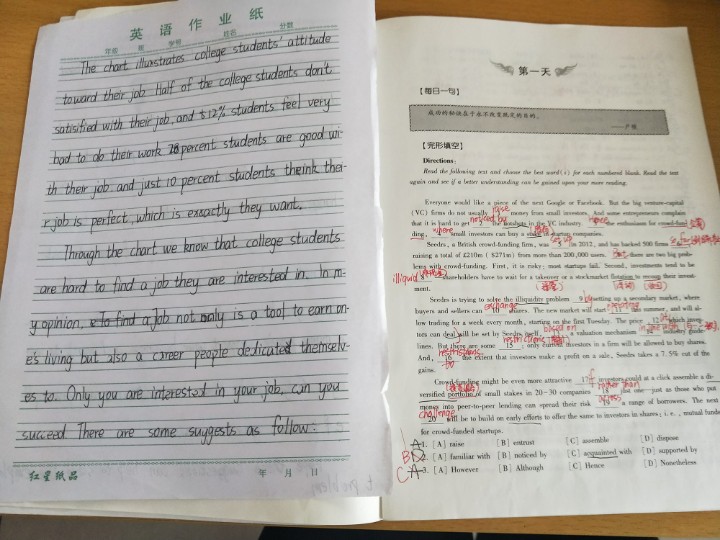 英语作业纸
年级 班 学号 姓名 分数
The chart illustrates college students' attitude
toward their job. Half of the college students don't
satisitified with their job, and 12% students feel very
bad to do their work. 28 percent students are good wi-
th their job. and just 10 percent students theink thei-
r job is perfect, which is exsactly they want.
Through the chart we know that college students
are hard to find a job they are interested in. In m-
y opinion, To find a job not only is a tool to earn on-
e's living but also a career people dedicated themselv-
es to. Only you are interested in your job, can you
succeed. There are some suggests as follow:
红星纸品
年 月 日
第一天
【每日一句】
成功的秘诀在于永不改变既定的目的。
——卢梭
【完形填空】
Directions:
Read the following text and choose the best word(s) for each numbered blank. Read the text
again and see if a better understanding can be gained upon your more reading.
Everyone would like a piece of the next Google or Facebook. But the big venture-capital
(VC) firms do not usually raise money from small investors. And some entrepreneurs complain
that it is hard to get 2 noticed by the hotshots in the VC industry. Hence the enthusiasm for crowd-fund
ing, where small investors can buy a stake of startup companies.
Seedrs, a British crowd-funding firm, was set up in 2012, and has backed 500 firms
raising a total of £210m ($271m) from more than 200,000 users. there are two big prob-
lems with crowd-funding. First, it is risky: most startups fail. Second, investments tend to be
illiquid 8 shareholders have to wait for a takeover or a stockmarket flotation to recoup their invest-
ment.
Seedrs is trying to solve the illiquidity problem 9 by setting up a secondary market, where
buyers and sellers can exchange 10 shares. The new market will start 11 this summer, and will al-
low trading for a week every month, starting on the first Tuesday. The price 12 which inves-
tors can deal will be set by Seedrs itself, based on 14 a valuation mechanism
lines. But there are some restrictions 15: only current investors in a firm will be allowed to buy shares.
And, 16 to the extent that investors make a profit on a sale, Seedrs takes a 7.5% cut of the
gains.
Crowd-funding might be even more attractive 17 if investors could at a click assemble a di-
versified portfolio of small stakes in 20-30 companies 18 rather than just one—just as those who put
money into peer-to-peer lending can spread their risk 19 across a range of borrowers. The next
challenge 20 will be to build on early efforts to offer the same to investors in shares; i.e., mutual funds
for crowd-funded startups.
A 1. [A] raise [B] entrust [C] assemble [D] dispose
B 2. [A] familiar with [B] noticed by [C] acquainted with [D] supported by
C 3. [A] However [B] Although [C] Hence [D] Nonetheless